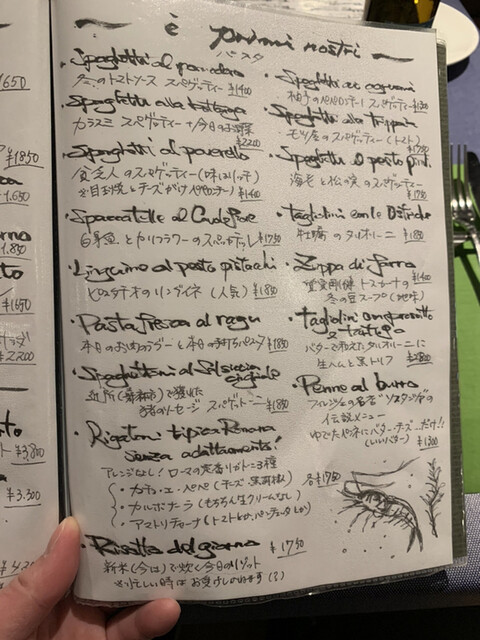 è primi nostri
パスタ
・Spaghetti al pomodoro
トマトソース スパゲッティー ¥1400
・Spaghetti alla bottarga
カラスミ スパゲッティー + 今日のお野菜 2200
・Spaghetti al poverello
貧乏人のスパゲッティー (味はリッチ)
目玉焼とチーズがけ ペペロンチーノ ¥1400
al Cavolfiore
白身魚とカリフラワーの ¥1750
・Linguine al pesto pistacchi
ピスタチオのリングイネ (人気) ¥1850
・Pasta fresca al ragu
本日のお肉のラグーと本日の手打ちパスタ ¥1850
・Spaghettoni al Salsiccia cinghiale
近所 で獲れた
猪のソーセージ スパゲットーニ ¥1850
・Rigatoni tipica Romana
senza adattamenti!
アレンジなし! ローマの定番リガトーニ3種
各¥1750
・カチョ・エ・ペペ (チーズ・黒胡椒)
・カルボナーラ (もちろん生クリームなし)
・アマトリチャーナ (トマトとか、パンチェッタとか)
・Risotto del giorno ¥1750
新米 (今は) で炊く今日のリゾット
忙しい時はお受けしかねます (?)
・Spaghetti ai agrumi
柚子のペペロンチーノ スパゲッティー
・Spaghetti alla trippa
モツ煮のスパゲッティー (トマト)
¥1750
・Spaghetti al pesto
海老と松の実のスパゲッティー
¥1750
・Taglolini con le Ostriche
牡蠣のタリオリーニ ¥1850
・Zuppa di farro ¥1400
質実剛健トスカーナの
冬の豆スープ (地味)
・Tagliolini con prosciutto
e tartufo
バターで和えたタリオリーニに
生ハムと黒トリフ ¥2800
・Penne al burro
フィレンツェの名店"ソスタンツァ"の
伝説メニュー
ゆでたペンネにバター、チーズ…だけ!!
(いいバター) ¥1300
¥1650
¥1850
¥1.650
1.850
¥1650
¥2200
¥3.800
¥3.300